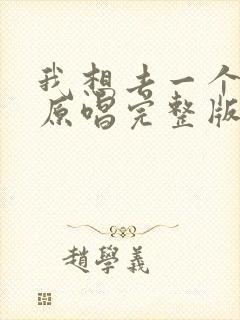 我想去一个
原唱完整版
趙學義